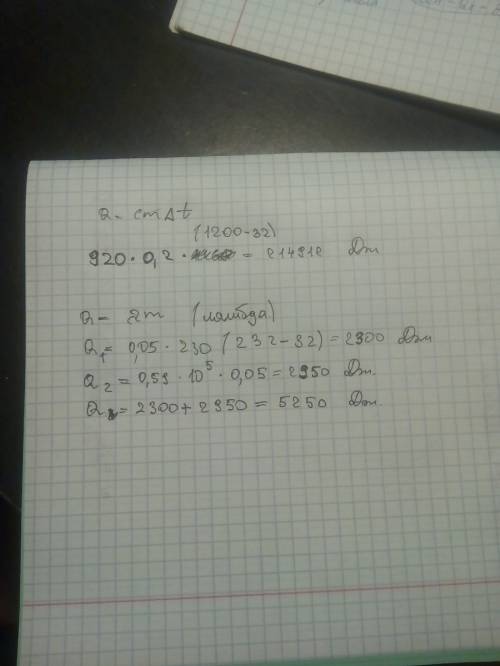 Q = cmΔt
(1200-32)
920 · 0,2 · = 214912 Дж
Q = λm (лямбда)
Q₁ = 0,05 · 230 (232-32) = 2300 Дж
Q₂ = 0,59 · 10⁵ · 0,05 = 2950 Дж.
Q = 2300 + 2950 = 5250 Дж.